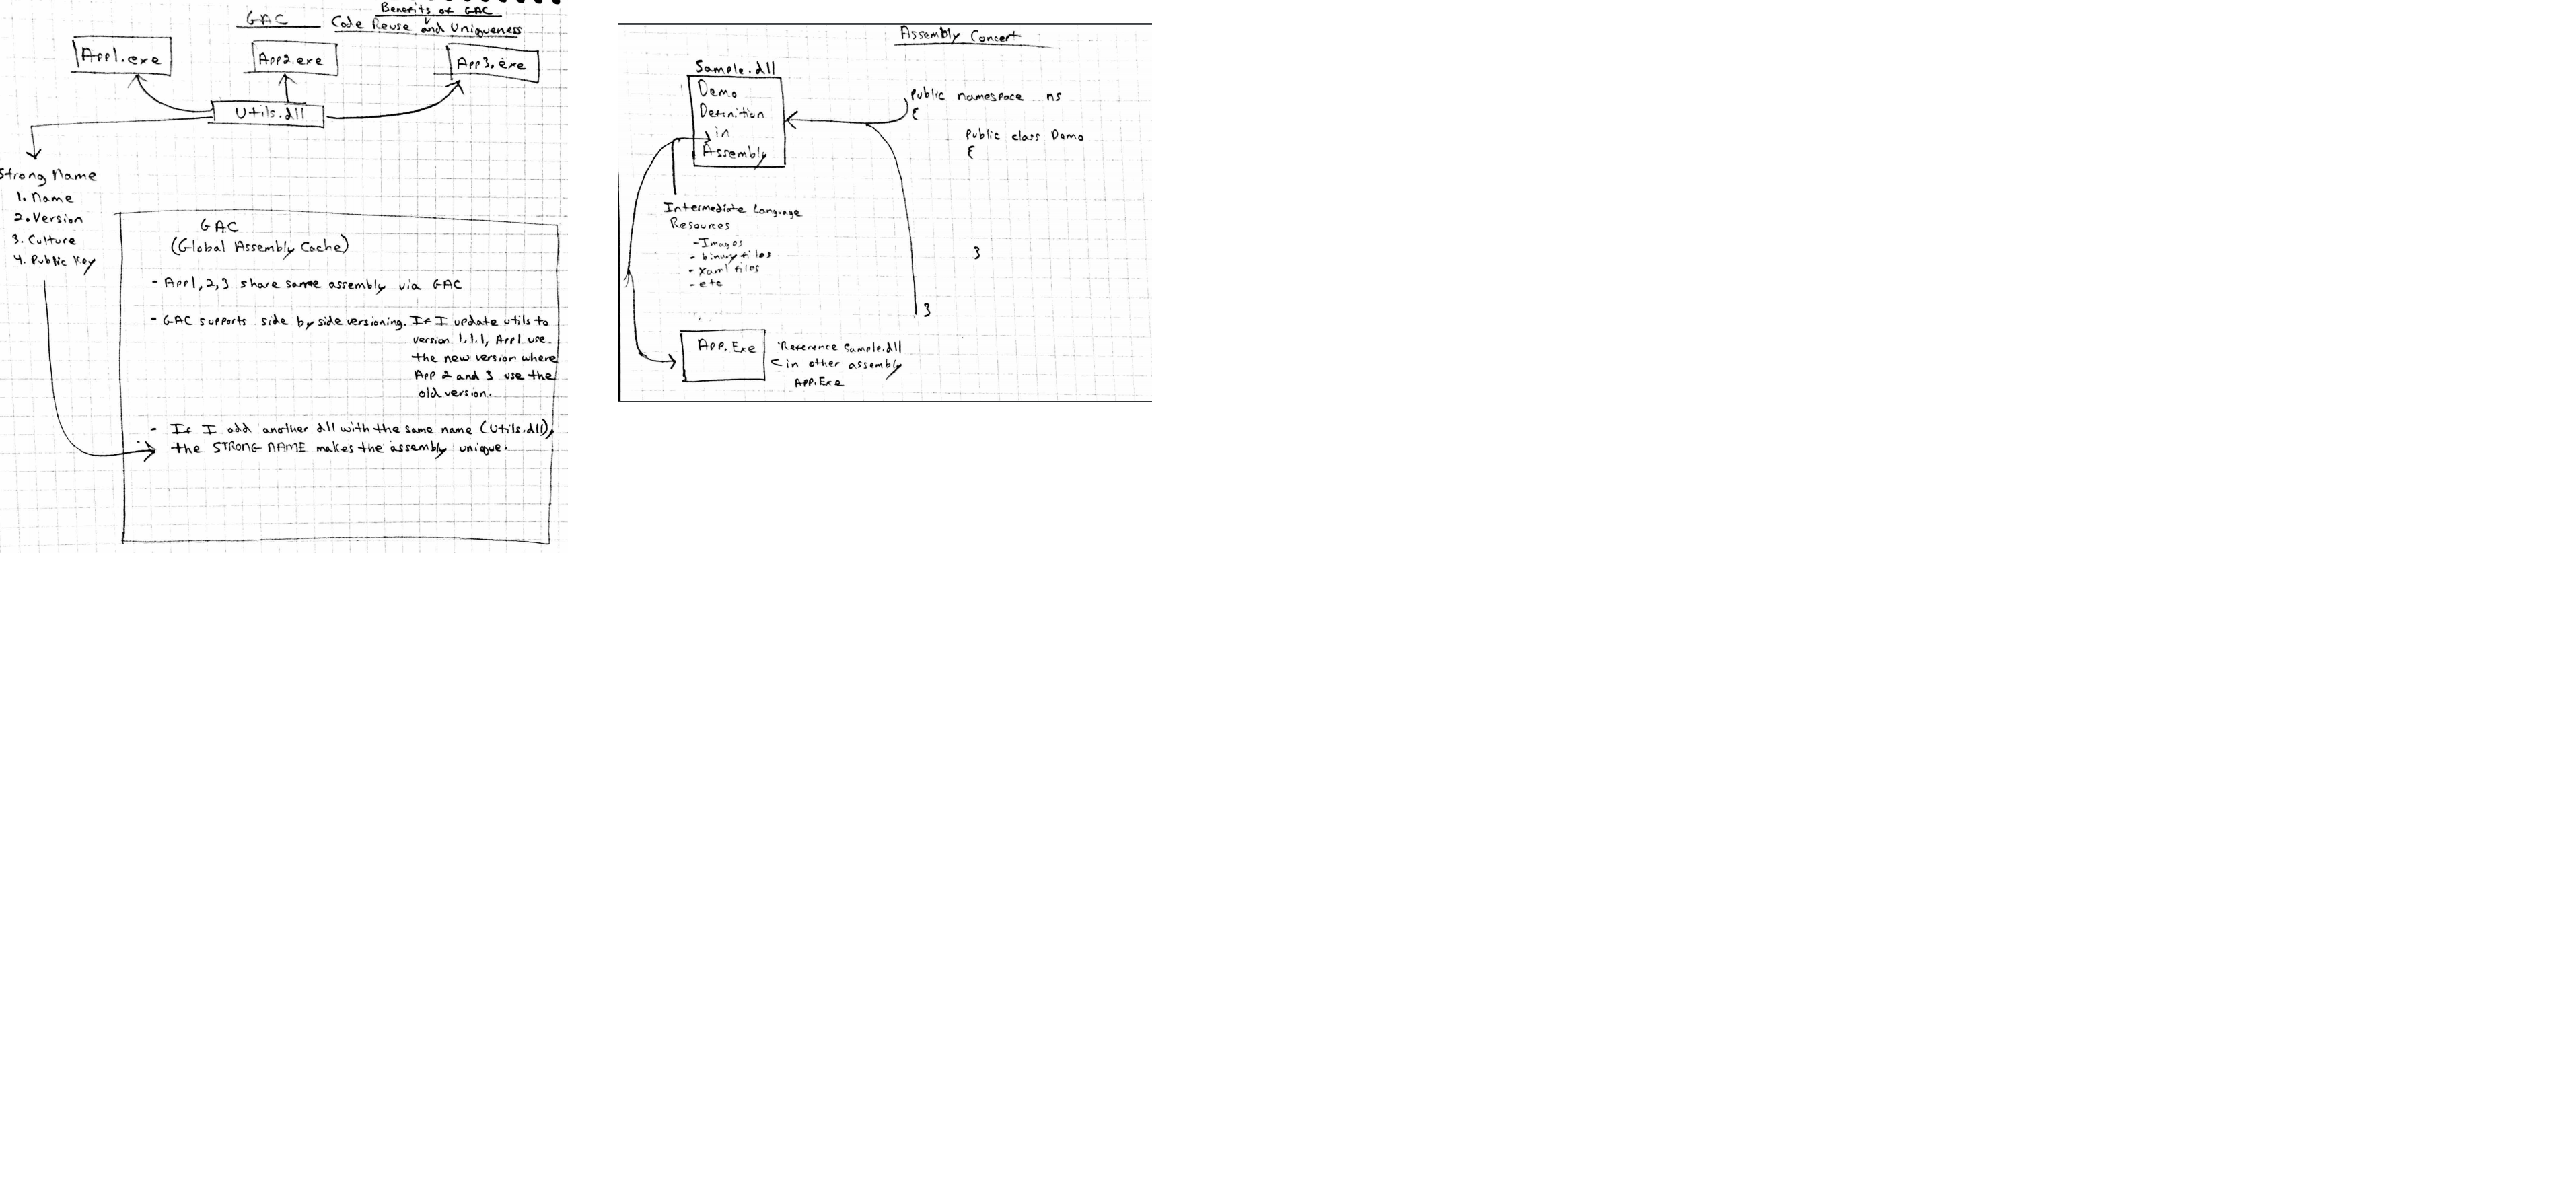 Benefits of GAC
GAC
Code Reuse and Uniqueness
App1.exe
App2.exe
App3.exe
Utils.dll
Strong Name
1. Name
2. Version
3. Culture
4. Public Key
GAC
(Global Assembly Cache)
- App1,2,3 share same assembly via GAC
- GAC supports side by side versioning. If I update utils to
version 1.1.1, App1 use
the new version where
App 2 and 3 use the
old version.
- If I add another dll with the same name (Utils.dll),
the STRONG NAME makes the assembly unique.
Assembly Concert
Sample.dll
Demo
Definition
in
Assembly
public namespace ns
{
public class Demo
{
}
}
Intermediate Language
Resources
- Images
- binary files
- xaml files
- etc
App.Exe
Reference Sample.dll
in other assembly
App.Exe